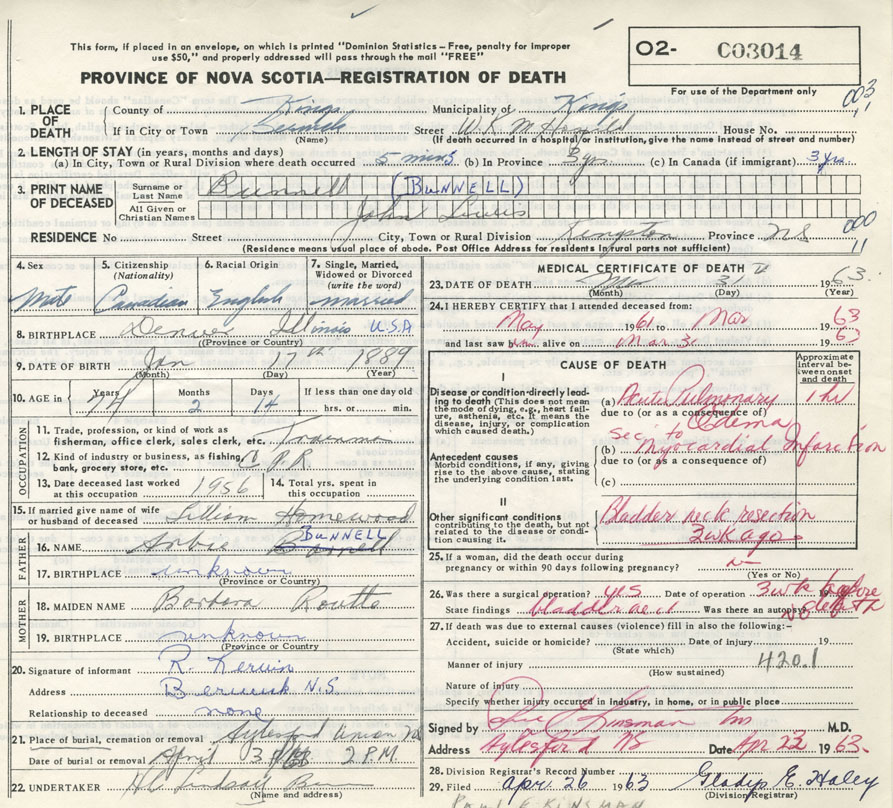 This form, if placed in an envelope, on which is printed "Dominion Statistics - Free, penalty for improper
use $50," and properly addressed will pass through the mail "FREE"
O2- C03014
PROVINCE OF NOVA SCOTIA—REGISTRATION OF DEATH
For use of the Department only
003
11
1. PLACE OF DEATH County of Kings Municipality of Kings
If in City or Town Berwick Street W K M Hospital House No.
(Name) (If death occurred in a hospital or institution, give the name instead of street and number)
2. LENGTH OF STAY (in years, months and days)
(a) In City, Town or Rural Division where death occurred 5 mins (b) In Province 3yrs (c) In Canada (if immigrant) 3 yrs
3. PRINT NAME OF DECEASED
Surname or Last Name Bunnell (BUNNELL)
All Given or Christian Names John Lewis
000
11
RESIDENCE No Street City, Town or Rural Division Kingston Province NS
(Residence means usual place of abode. Post Office Address for residents in rural parts not sufficient)
4. Sex Male
5. Citizenship (Nationality) Canadian
6. Racial Origin English
7. Single, Married, Widowed or Divorced (write the word) married
8. BIRTHPLACE Denver Illinois USA
(Province or Country)
9. DATE OF BIRTH Jan 17th 1889
(Month) (Day) (Year)
10. AGE in Years Months Days If less than one day old
2 14 hrs. or min.
OCCUPATION
11. Trade, profession, or kind of work as
fisherman, office clerk, sales clerk, etc. Trainman
12. Kind of industry or business, as fishing,
bank, grocery store, etc. C.P.R
13. Date deceased last worked
at this occupation 1956
14. Total yrs. spent in
this occupation
15. If married give name of wife
or husband of deceased Lillian Homewood
FATHER
16. NAME BUNNELL
17. BIRTHPLACE unknown
(Province or Country)
MOTHER
18. MAIDEN NAME Barbara
19. BIRTHPLACE unknown
(Province or Country
20. Signature of informant R. Kerwin
Address Berwick N.S.
Relationship to deceased none
21. Place of burial, cremation or removal Aylesford Union
Date of burial or removal April 3 2 P.M.
22. UNDERTAKER H.C. Lindsay
(Name and address)
MEDICAL CERTIFICATE OF DEATH
23. DATE OF DEATH Mar 31 1963.
(Month) (Day) (Year)
24. I HEREBY CERTIFY that I attended deceased from:
May 1961 to Mar 63
and last saw h alive on Mar 31 1963
CAUSE OF DEATH
Approximate interval between onset and death
I
Disease or condition directly leading to death (This does not mean the mode of dying, e.g., heart failure, asthenia, etc. It means the disease, injury, or complication which caused death.)
(a) Acute Pulmonary Odema 1 hr
due to (or as a consequence of)
Antecedent causes
Morbid conditions, if any, giving rise to the above cause, stating the underlying condition last.
sec. to
(b) Myocardial Infarction
due to (or as a consequence of)
(c)
II
Other significant conditions
contributing to the death, but not related to the disease or condition causing it.
Bladder neck resection
3 wk ago
25. If a woman, did the death occur during
pregnancy or within 90 days following pregnancy?
(Yes or No)
26. Was there a surgical operation? yes Date of operation 3 wk before death
State findings Was there an autopsy? No
27. If death was due to external causes (violence) fill in also the following:-
Accident, suicide or homicide? Date of injury 19
(State which)
Manner of injury 420.1
(How sustained)
Nature of injury
Specify whether injury occurred in industry, in home, or in public place
Signed by Kinsman M.D.
Address Aylesford NS Date Apr 22 1963.
28. Division Registrar's Record Number
29. Filed Apr. 26 1963 Gladys E. Haley
(Division Registrar)
PAUL E KINSMAN